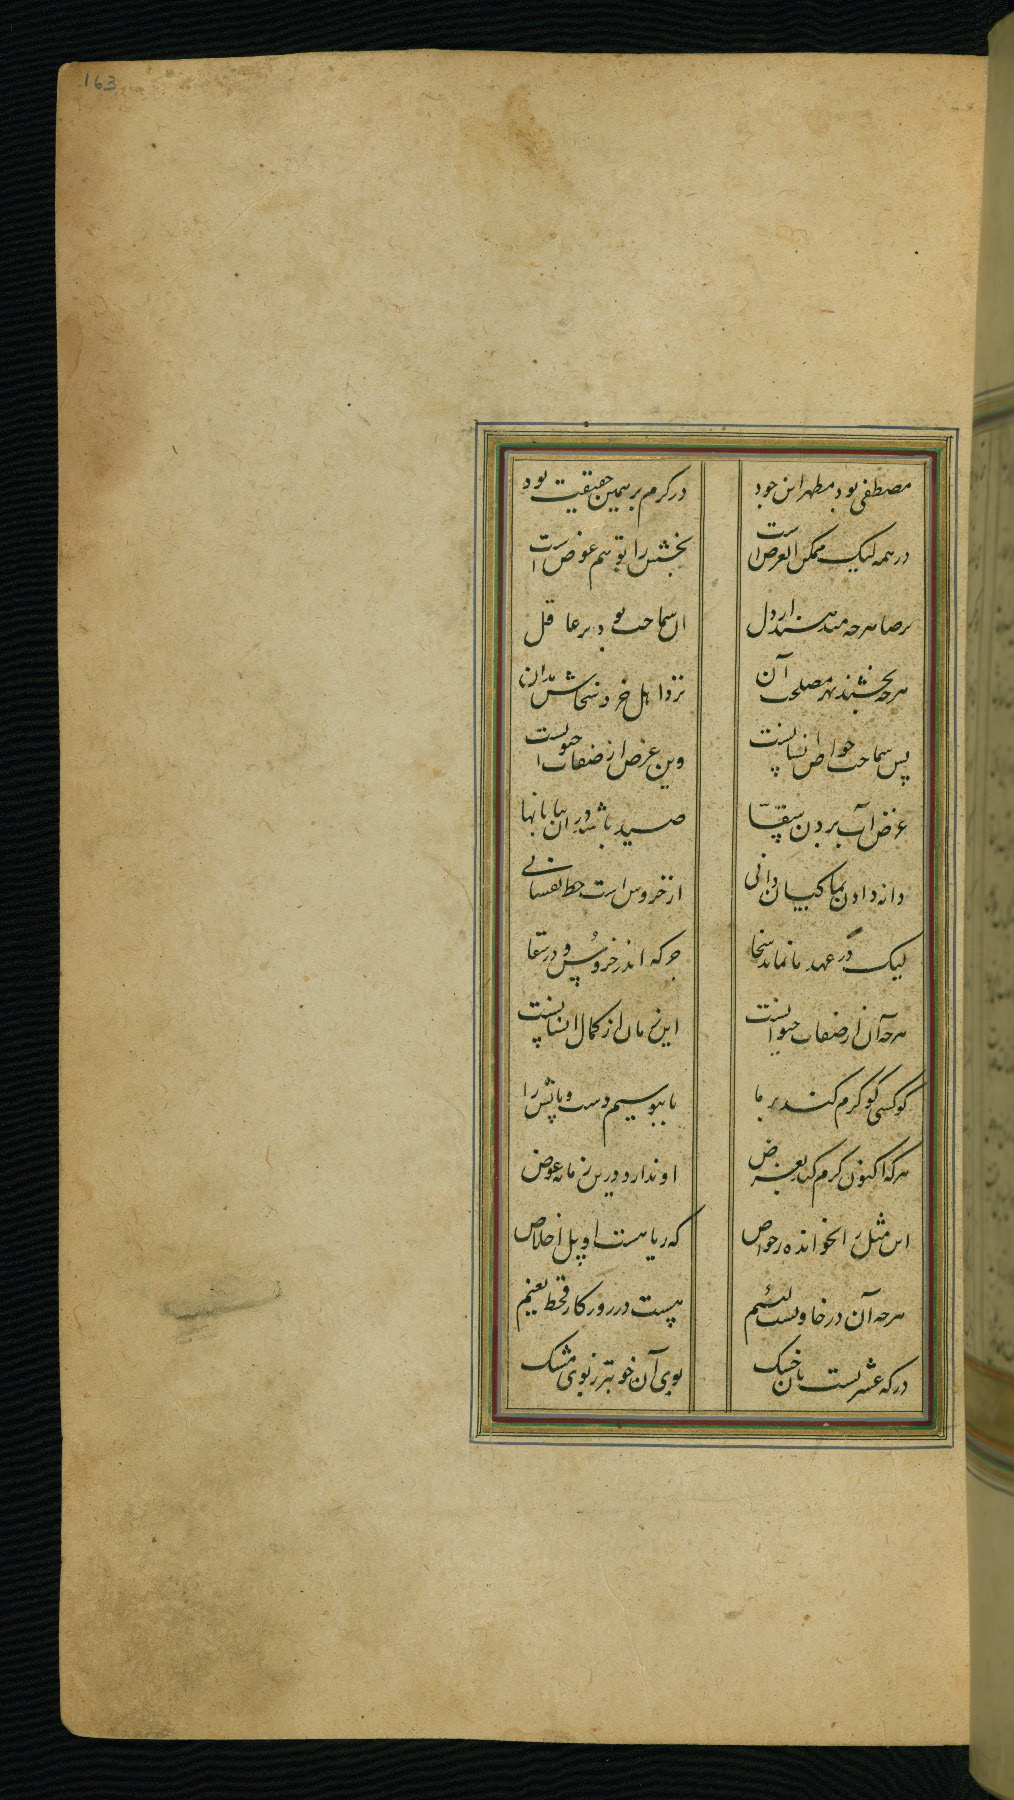 163
مصطفی بود مظهر این جود
در کرم بر همین حقیقت بود
در همه لیک ممکن العرض است
بخشش را تو هم عوض است
هر چه بخشند بهر مصلحت آن
نزد اهل خرد سخاش مدان
پس سماحت خواص انسانیست
وین غرض از صفات حیوانیست
غرض آب بردن سقّا
صید باشد در آن بیابانها
دانه دادن بماکیان دانی
از خروس است حظ نفسانی
لیک در عهد ما نماند سخا
جز که اندر خروس و در سقا
هرچه آن از صفات حیوانیست
این زمان از کمال انسانیست
کو کسی کو کرم کند بر ما
تا ببوسیم دست و پاش را
هر که اکنون کرم کند بغرض
او ندارد درین زمانه عوض
این مثل را نخوانده ز خواص
که ریا هست اوپل اخلاص
هرچه آن در سخاوتست لئیم
هست در روزکار قحط نعیم
در که عشریست نان خشک
بوی آن خوبتر ز بوی مشک